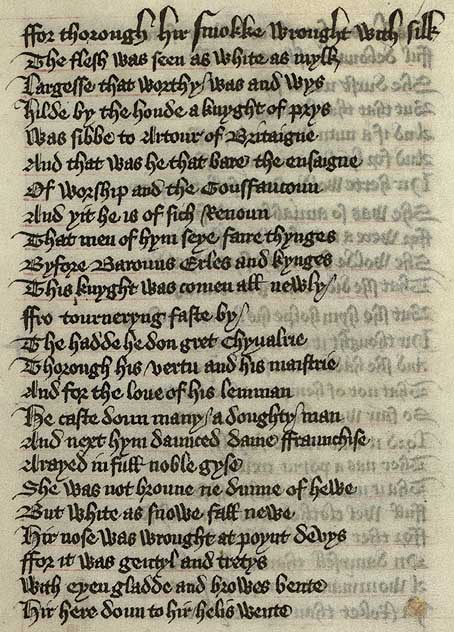 ffor thorough hir smokke wrought with silk
The flesh was seen as white as mylk
Largesse that worthy / was and wys
Hilde by the honde a knyght of prys
Was sibbe to Artour of Britaigne
And that was he that bare the ensaigne
Of worship and the Gouffaucoun
And yit he is of sich Renoun
That men of hym seye faire thynges
Byfore Barouns Erles and kynges
This knyght was comen all newly /
ffro tourneryng faste by /
The hadde he don gret Chyvalrie
Thorough his vertu and his maistrie
And for the love of his lemman
He caste doun many / a doughty / man
And next hym daunced dame ffraunchise
Arayed in full noble gyse
She was not broune ne dunne of hewe
But white as snowe fall newe
Hir nose was wrought at poynt devys
ffor it was gentyl and tretys
With eyen gladde and browes bente
Hir here doun to hir helis wente